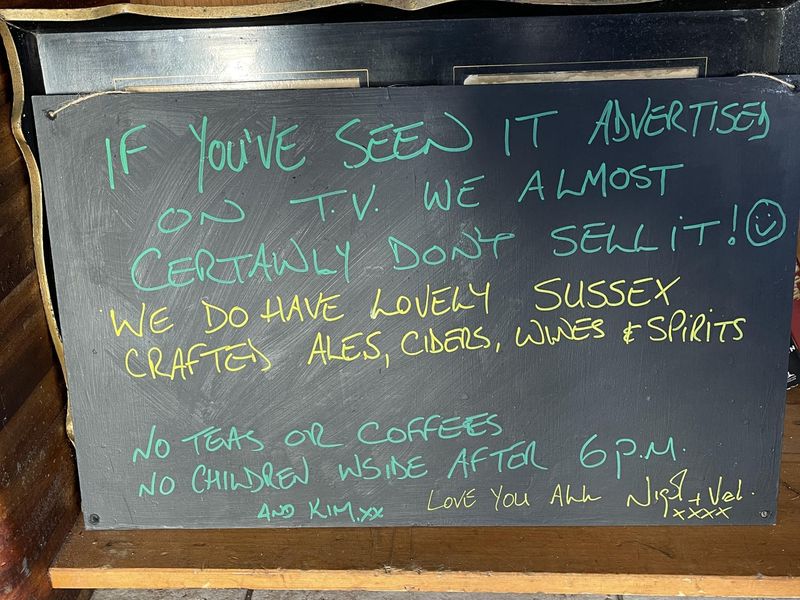 IF YOU'VE SEEN IT ADVERTISED
ON T.V. WE ALMOST
CERTAINLY DON'T SELL IT!
WE DO HAVE LOVELY SUSSEX
CRAFTED ALES, CIDERS, WINES & SPIRITS
NO TEAS OR COFFEES
NO CHILDREN INSIDE AFTER 6 P.M.
LOVE YOU ALL Nigel + Val.
AND KIM.xx xxxx